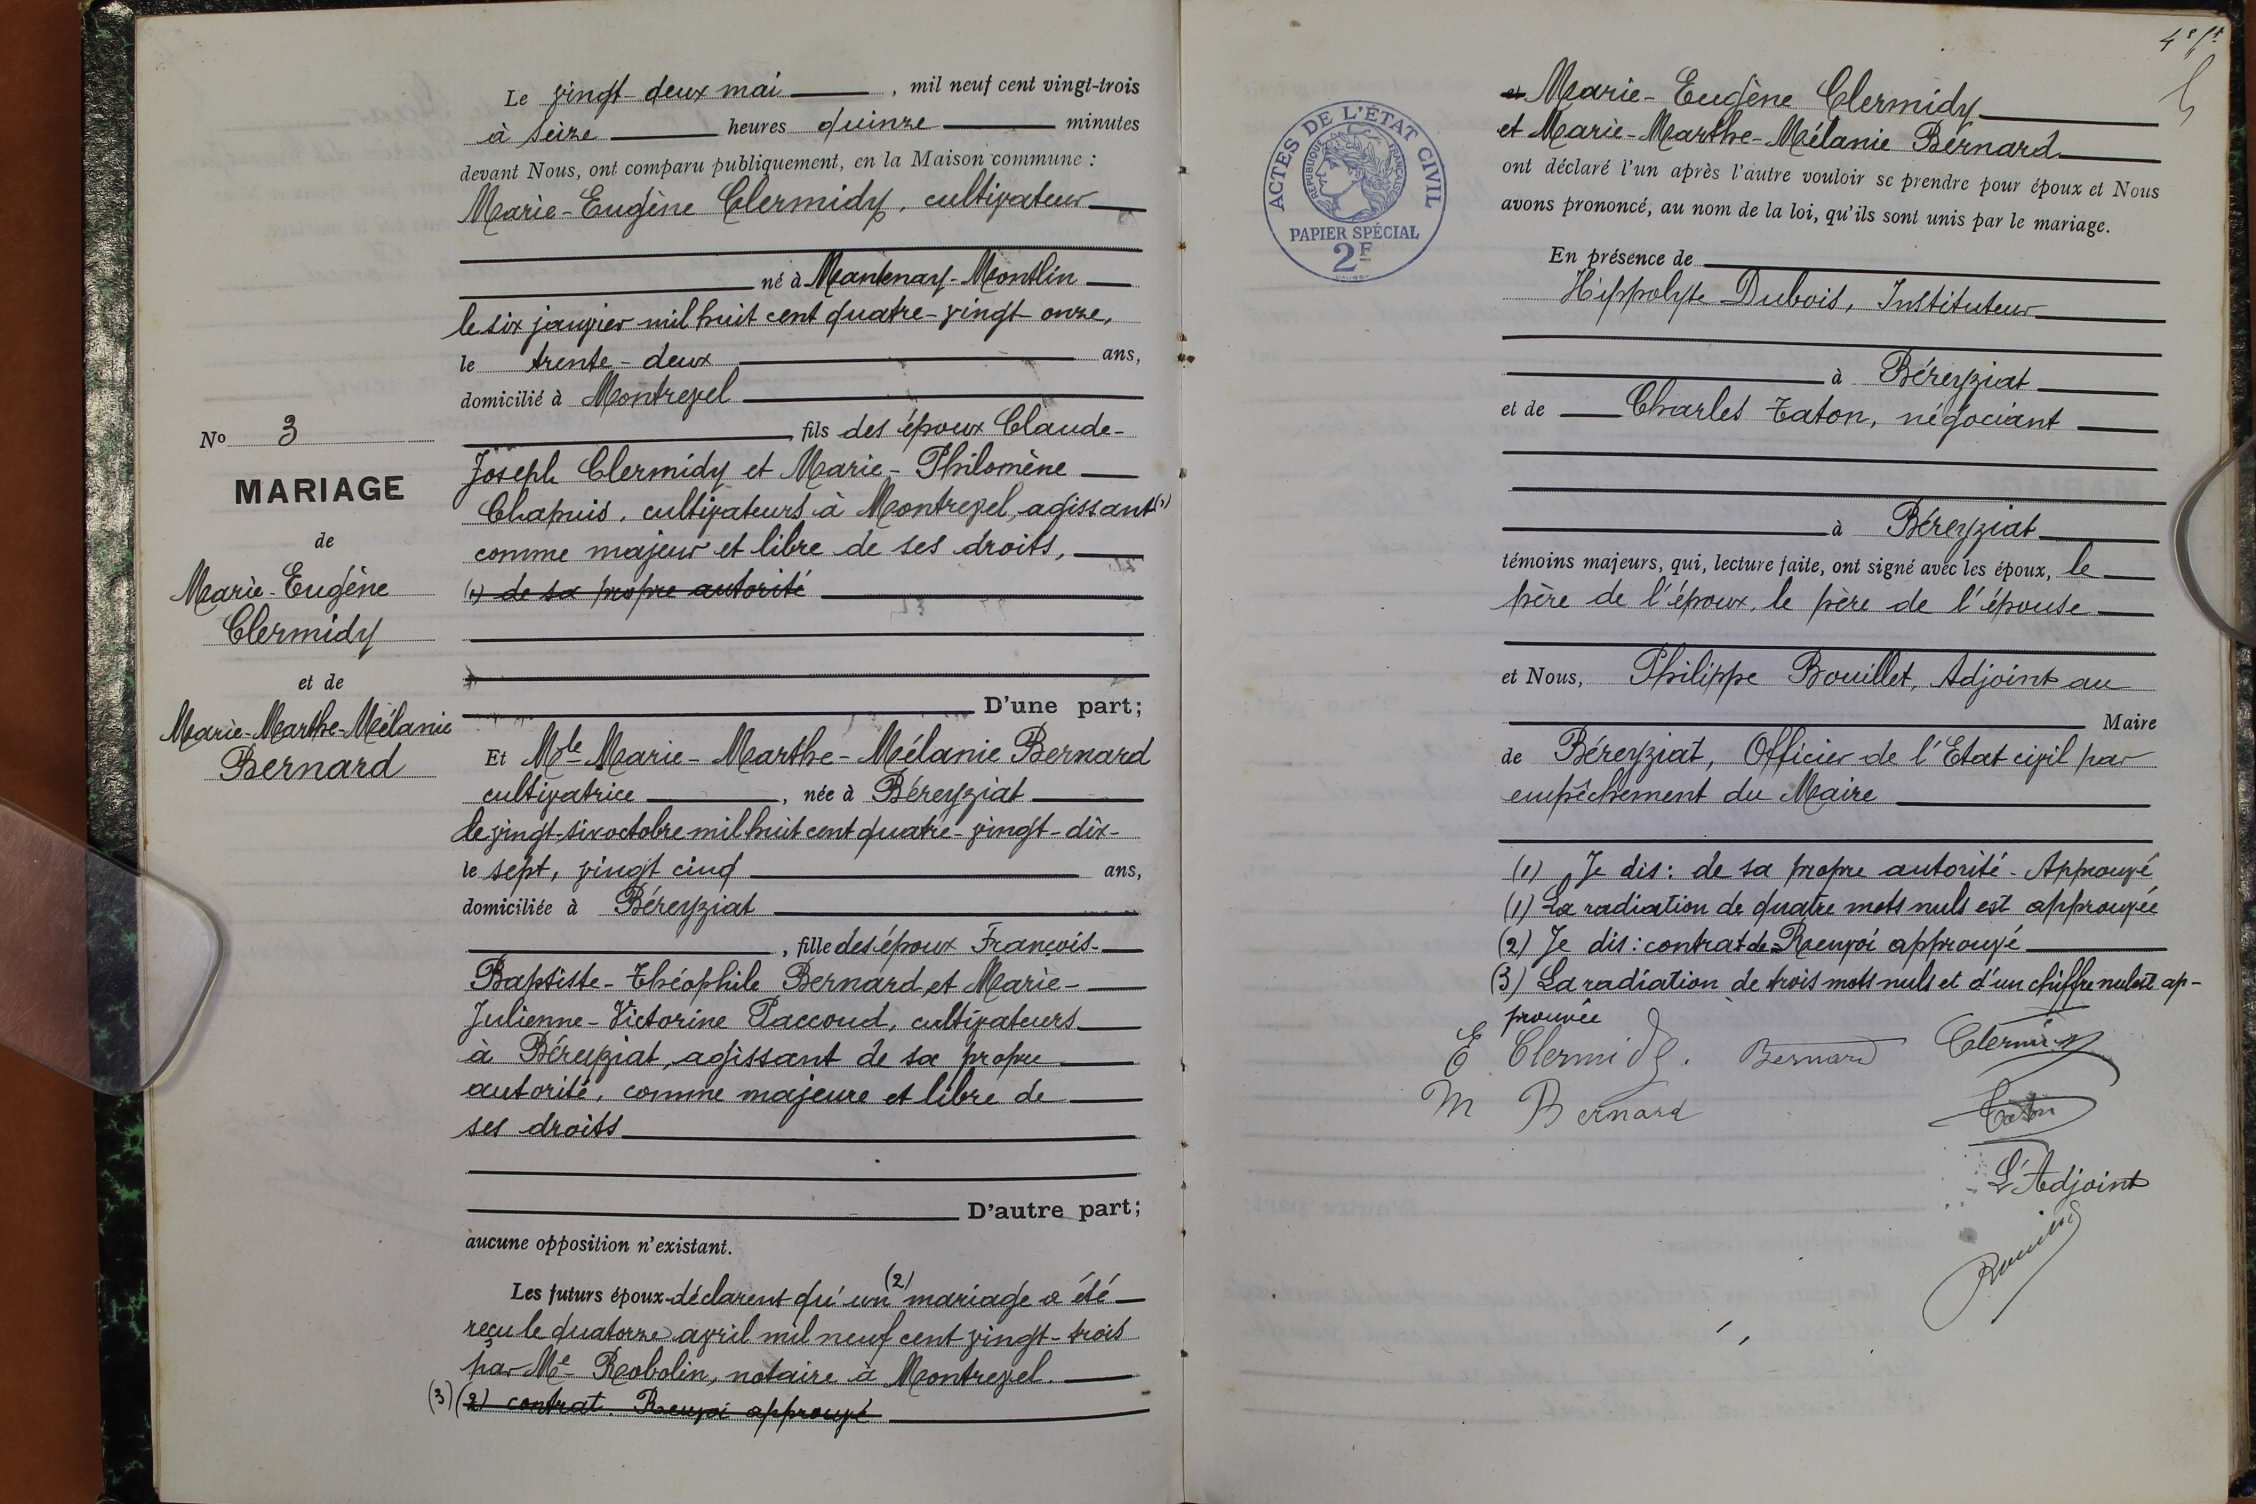 Le vingt-deux mai, mil neuf cent vingt-trois
à seize heures quinze minutes
devant Nous, ont comparu publiquement, en la Maison commune :
Marie-Eugène Clermidy, cultivateur
né à Mantenay-Montlin
le six janvier mil huit cent quatre-vingt onze,
le trente-deux ans,
domicilié à Montrevel
fils des époux Claude-
Joseph Clermidy et Marie-Philomène
Chapuis, cultivateurs à Montrevel, agissant (1)
comme majeur et libre de ses droits,
(1) de sa propre autorité
D'une part;
No 3
MARIAGE
de
Marie-Eugène
Clermidy
et de
Marie-Marthe-Mélanie
Bernard
Et Mlle Marie-Marthe-Mélanie Bernard
cultivatrice, née à Béreyziat
le vingt-six octobre mil huit cent quatre-vingt-dix-
le sept, vingt cinq ans,
domiciliée à Béreyziat
, fille des époux François-
Baptiste-Théophile Bernard, et Marie-
Julienne-Victorine Paccoud, cultivateurs
à Béreyziat, agissant de sa propre
autorité, comme majeure et libre de
ses droits
D'autre part;
aucune opposition n'existant.
Les futurs époux déclarent qu'un (2) mariage a été
reçu le quatorze avril mil neuf cent vingt-trois
par Me Robolin, notaire à Montrevel.
(3) (2) contrat. Renvoi approuvé
et Marie-Eugène Clermidy
et Marie-Marthe-Mélanie Bernard
ont déclaré l'un après l'autre vouloir se prendre pour époux et Nous
avons prononcé, au nom de la loi, qu'ils sont unis par le mariage.
ACTES DE L'ÉTAT CIVIL
RÉPUBLIQUE FRANÇAISE
PAPIER SPÉCIAL
2F
En présence de
Hippolyte Dubois, Instituteur
à Béreyziat
et de Charles Taton, négociant
à Béreyziat
témoins majeurs, qui, lecture faite, ont signé avec les époux, le
père de l'époux, le père de l'épouse
et Nous, Philippe Bouillet, Adjoint au
Maire
de Béreyziat, Officier de l'Etat civil par
empêchement du Maire
(1) Je dis : de sa propre autorité - Approuvé
(1) La radiation de quatre mots nuls est approuvée
(2) Je dis : contrat de - Renvoi approuvé
(3) La radiation de trois mots nuls et d'un chiffre nul est ap-
prouvée
E Clermidy. Bernard Clermidy
M Bernard
Taton
L'Adjoint
Bouillet